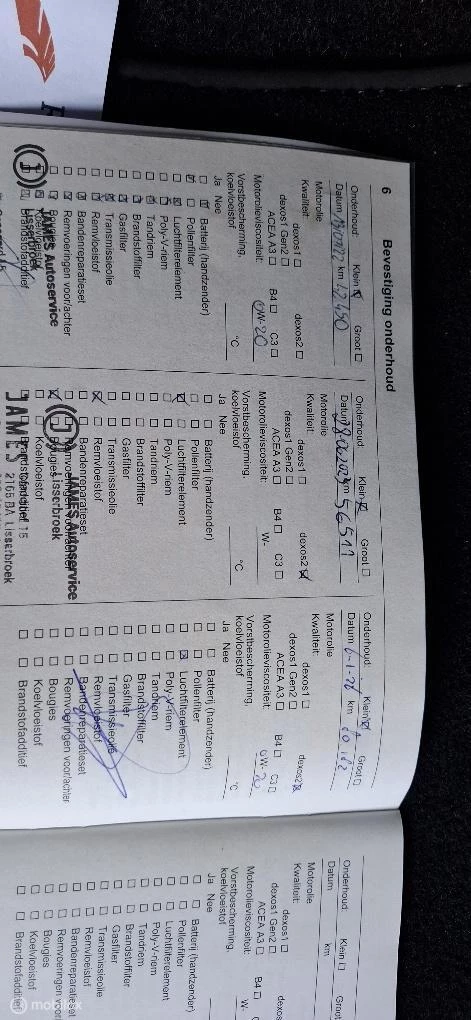 6
Bevestiging onderhoud
Onderhoud: Klein Groot
Datum km
Motorolie
Kwaliteit: dexos1 dexos2
dexos1 Gen2
ACEA A3 B4 C3
Motorolieviscositeit: 0W-20
Vorstbescherming,
koelvloeistof °C
Ja Nee
Batterij (handzender)
Pollenfilter
Luchtfilterelement
Poly-V-riem
Tandriem
Brandstoffilter
Gasfilter
Transmissieolie
Remvloeistof
Bandenreparatieset
Remvoeringen voor/achter
Bougies
Koelvloeistof
Brandstofadditief
JAMES Autoservice
Lisserbroek
Onderhoud: Klein Groot
Datum km 56511
Motorolie
Kwaliteit: dexos1 dexos2
dexos1 Gen2
ACEA A3 B4 C3
Motorolieviscositeit: W-
Vorstbescherming,
koelvloeistof °C
Ja Nee
Batterij (handzender)
Pollenfilter
Luchtfilterelement
Poly-V-riem
Tandriem
Brandstoffilter
Gasfilter
Transmissieolie
Remvloeistof
Bandenreparatieset
Remvoeringen voor/achter
Bougies
Koelvloeistof
Brandstofadditief
JAMES Autoservice
Lisserbroek
JAMES
2165 BA Lisserbroek
Onderhoud: Klein Groot
Datum km
Motorolie
Kwaliteit: dexos1 dexos2
dexos1 Gen2
ACEA A3 B4 C3
Motorolieviscositeit: 0W-20
Vorstbescherming,
koelvloeistof °C
Ja Nee
Batterij (handzender)
Pollenfilter
Luchtfilterelement
Poly-V-riem
Tandriem
Brandstoffilter
Gasfilter
Transmissieolie
Remvloeistof
Bandenreparatieset
Remvoeringen voor/achter
Bougies
Koelvloeistof
Brandstofadditief
Onderhoud: Klein Groot
Datum km
Motorolie
Kwaliteit: dexos1 dexos
dexos1 Gen2
ACEA A3 B4
Motorolieviscositeit: W-
Vorstbescherming,
koelvloeistof
Ja Nee
Batterij (handzender)
Pollenfilter
Luchtfilterelement
Poly-V-riem
Tandriem
Brandstoffilter
Gasfilter
Transmissieolie
Remvloeistof
Bandenreparatieset
Remvoeringen voor
Bougies
Koelvloeistof
Brandstofadditief
mobilox